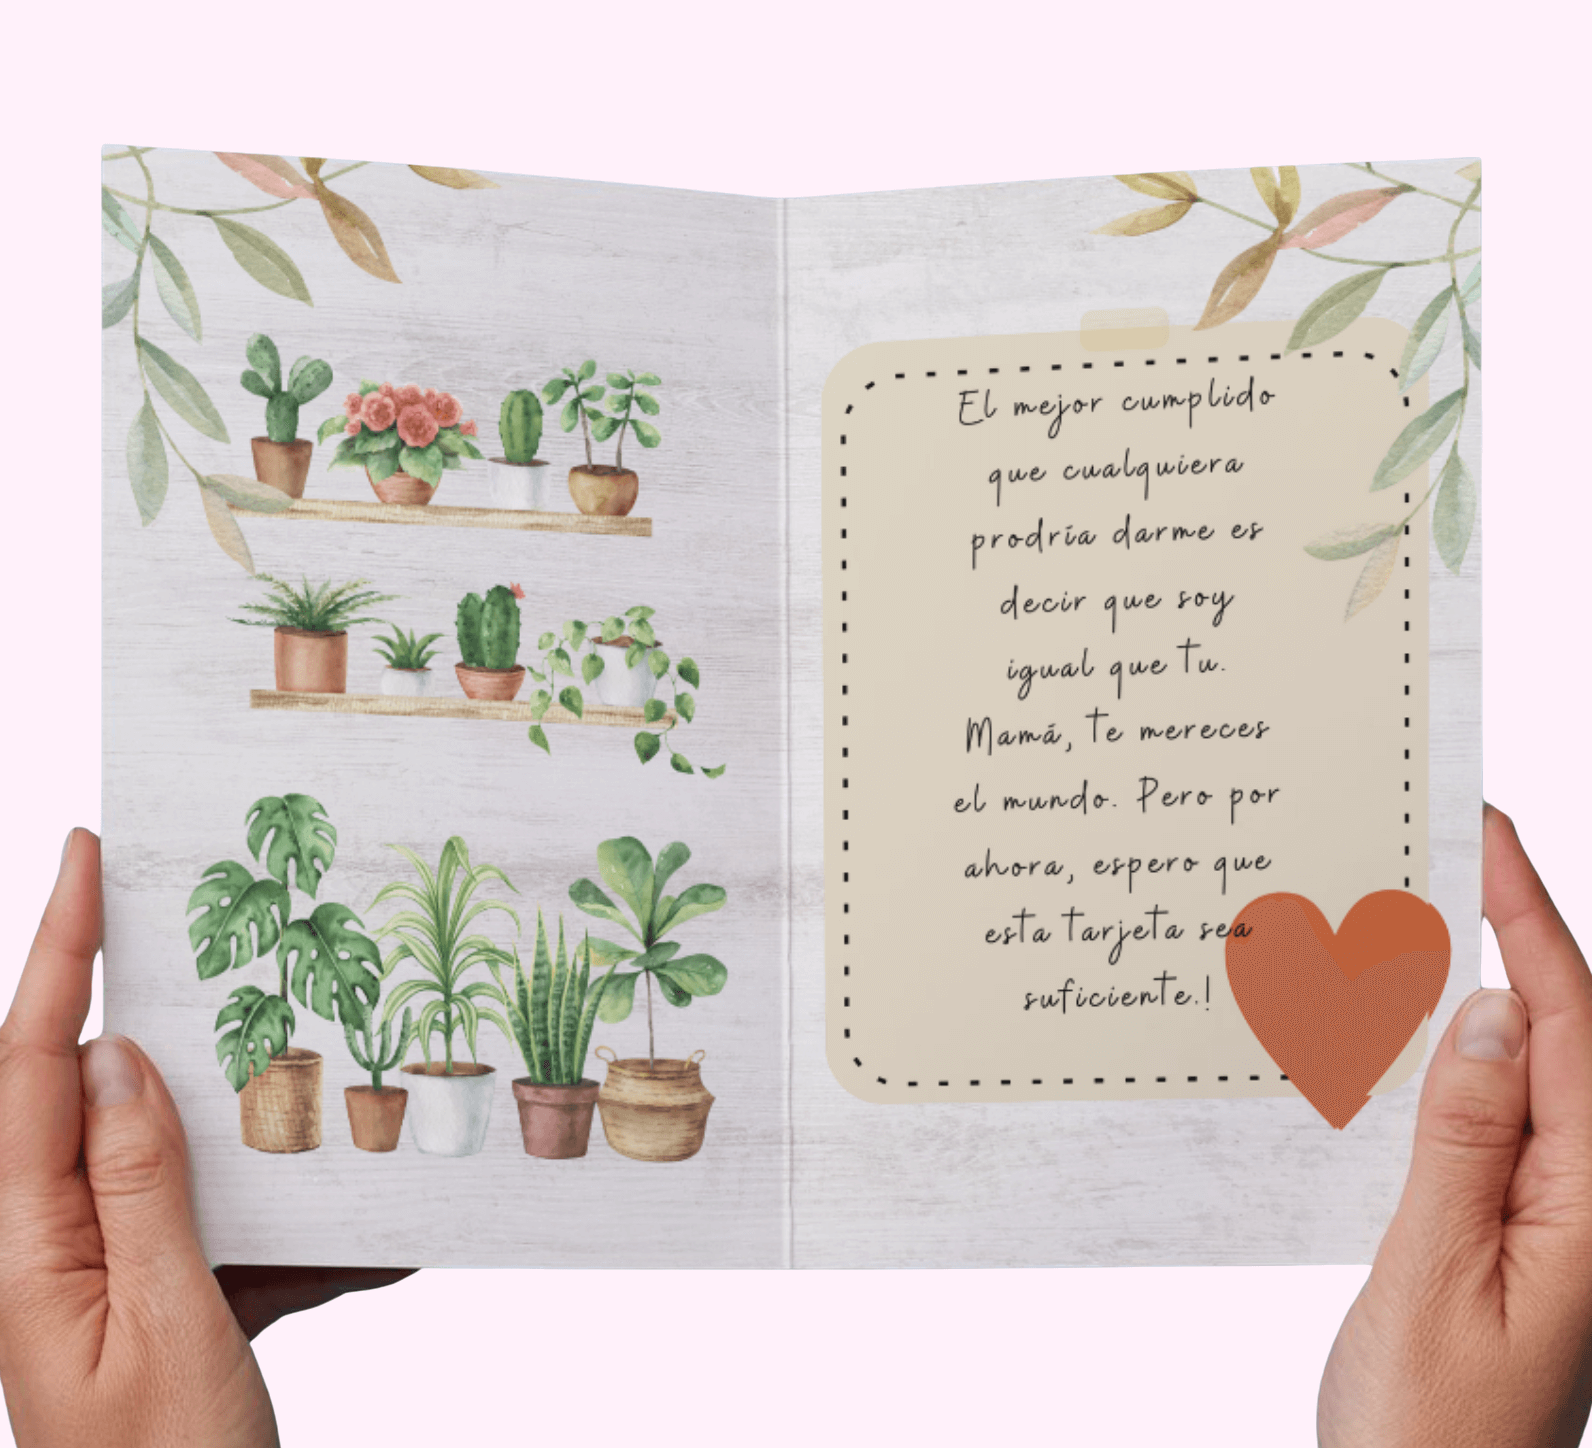 El mejor cumplido
que cualquiera
prodría darme es
decir que soy
igual que tu.
Mamá, te mereces
el mundo. Pero por
ahora, espero que
esta tarjeta sea
suficiente.!